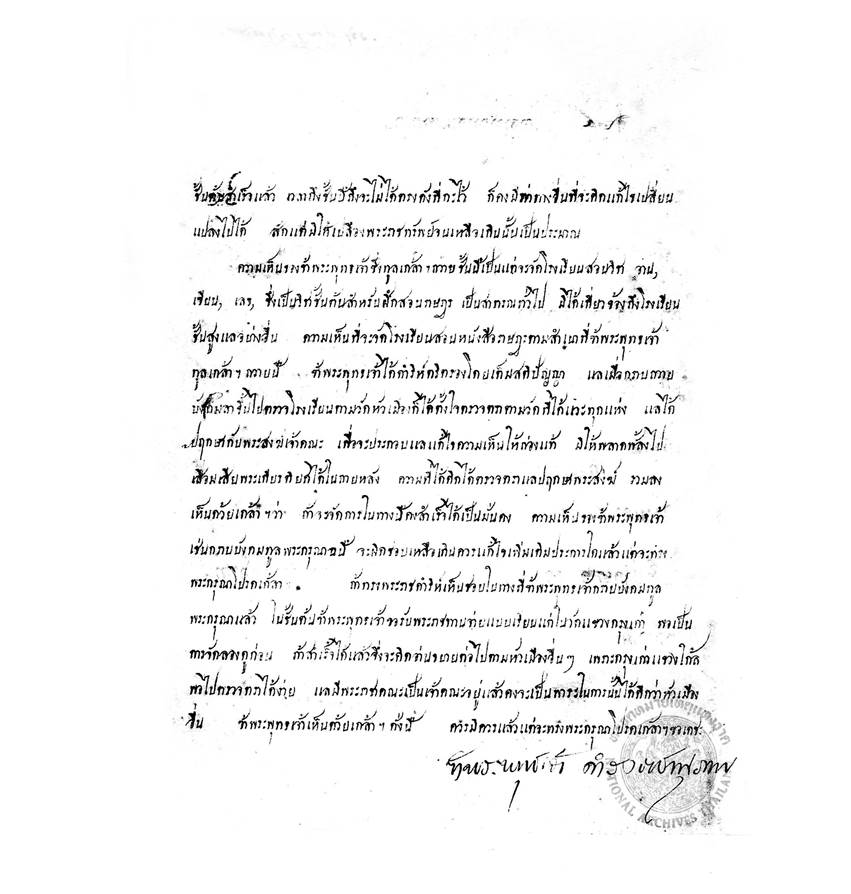 ชั้นต้นสำเร็จแล้ว ถึงชั้นนี้ถึงจะไม่ได้ตรงดังที่กะไว้ ก็คงมีทางอื่นที่จะคิดแก้ไขเปลี่ยน
แปลงไปได้ สักแต่มิให้เปลืองพระราชทรัพย์จนเหลือเกินนั้นเป็นประมาณ
ความเห็นของข้าพระพุทธเจ้าซึ่งทูลเกล้าฯ ถวายชั้นนี้เป็นแต่จะจัดโรงเรียนสอนวิชา อ่าน,
เขียน, เลข, ซึ่งเป็นวิชาชั้นต้นสำหรับฝึกสอนราษฎร เป็นสาธารณทั่วไป มิได้เกี่ยวข้องถึงโรงเรียน
ชั้นสูงแลอย่างอื่น ความเห็นที่จะจัดโรงเรียนสอนหนังสือราษฎรตามสำเนาที่ข้าพระพุทธเจ้า
ทูลเกล้าฯ ถวายนี้ ข้าพระพุทธเจ้าได้ดำริห์ตริตรองโดยเต็มสติปัญญา แลเมื่อกราบถวาย
บังคมลาขึ้นไปตรวจโรงเรียนตามวัดหัวเมืองก็ได้ตั้งใจตรวจตราตามวัดที่ได้แวะทุกแห่ง แลได้
ปฤกษากับพระสงฆ์เจ้าคณะ เพื่อจะประกอบแลแก้ไขความเห็นให้ถ่องแท้ มิให้พลาดพลั้งไป
เสื่อมเสียพระเกียรติยศได้ในภายหลัง ความที่ได้คิดได้ตรวจตราแลปฤกษาพระสงฆ์ รวมลง
เห็นด้วยเกล้าฯ ว่า ถ้าจะจัดการในทางนี้คงสำเร็จได้เป็นมั่นคง ความเห็นข้าพระพุทธเจ้า
เช่นกราบบังคมทูลพระกรุณามานี้ จะผิดชอบเหลือเกินควรแก้ไขเพิ่มเติมประการใดแล้วแต่จะทรง
พระกรุณาโปรดเกล้าฯ ถ้าทรงพระราชดำริห์เห็นชอบในทางที่ข้าพระพุทธเจ้ากราบบังคมทูล
พระกรุณาแล้ว ในชั้นต้นข้าพระพุทธเจ้าขอรับพระราชทานจ่ายแบบเรียนแต่ในวัดแขวงกรุงเก่า พอเป็น
การจัดลองดูก่อน ถ้าสำเร็จได้แล้วจึงจะคิดขยายต่อไปตามหัวเมืองอื่นๆ เพราะกรุงเก่าแขวงใกล้
พอไปตรวจตราได้ง่าย แลมีพระราชาคณะเป็นเจ้าคณะอยู่แล้วคงจะเป็นภาระในการนี้ได้ดีกว่าหัวเมือง
อื่น ข้าพระพุทธเจ้าเห็นด้วยเกล้าฯ ดังนี้ ควรมิควรแล้วแต่จะทรงพระกรุณาโปรดเกล้าฯ ขอเดชะ
ข้าพระพุทธเจ้า ดำรงราชานุภาพ
หอจดหมายเหตุแห่งชาติ
NATIONAL ARCHIVES THAILAND